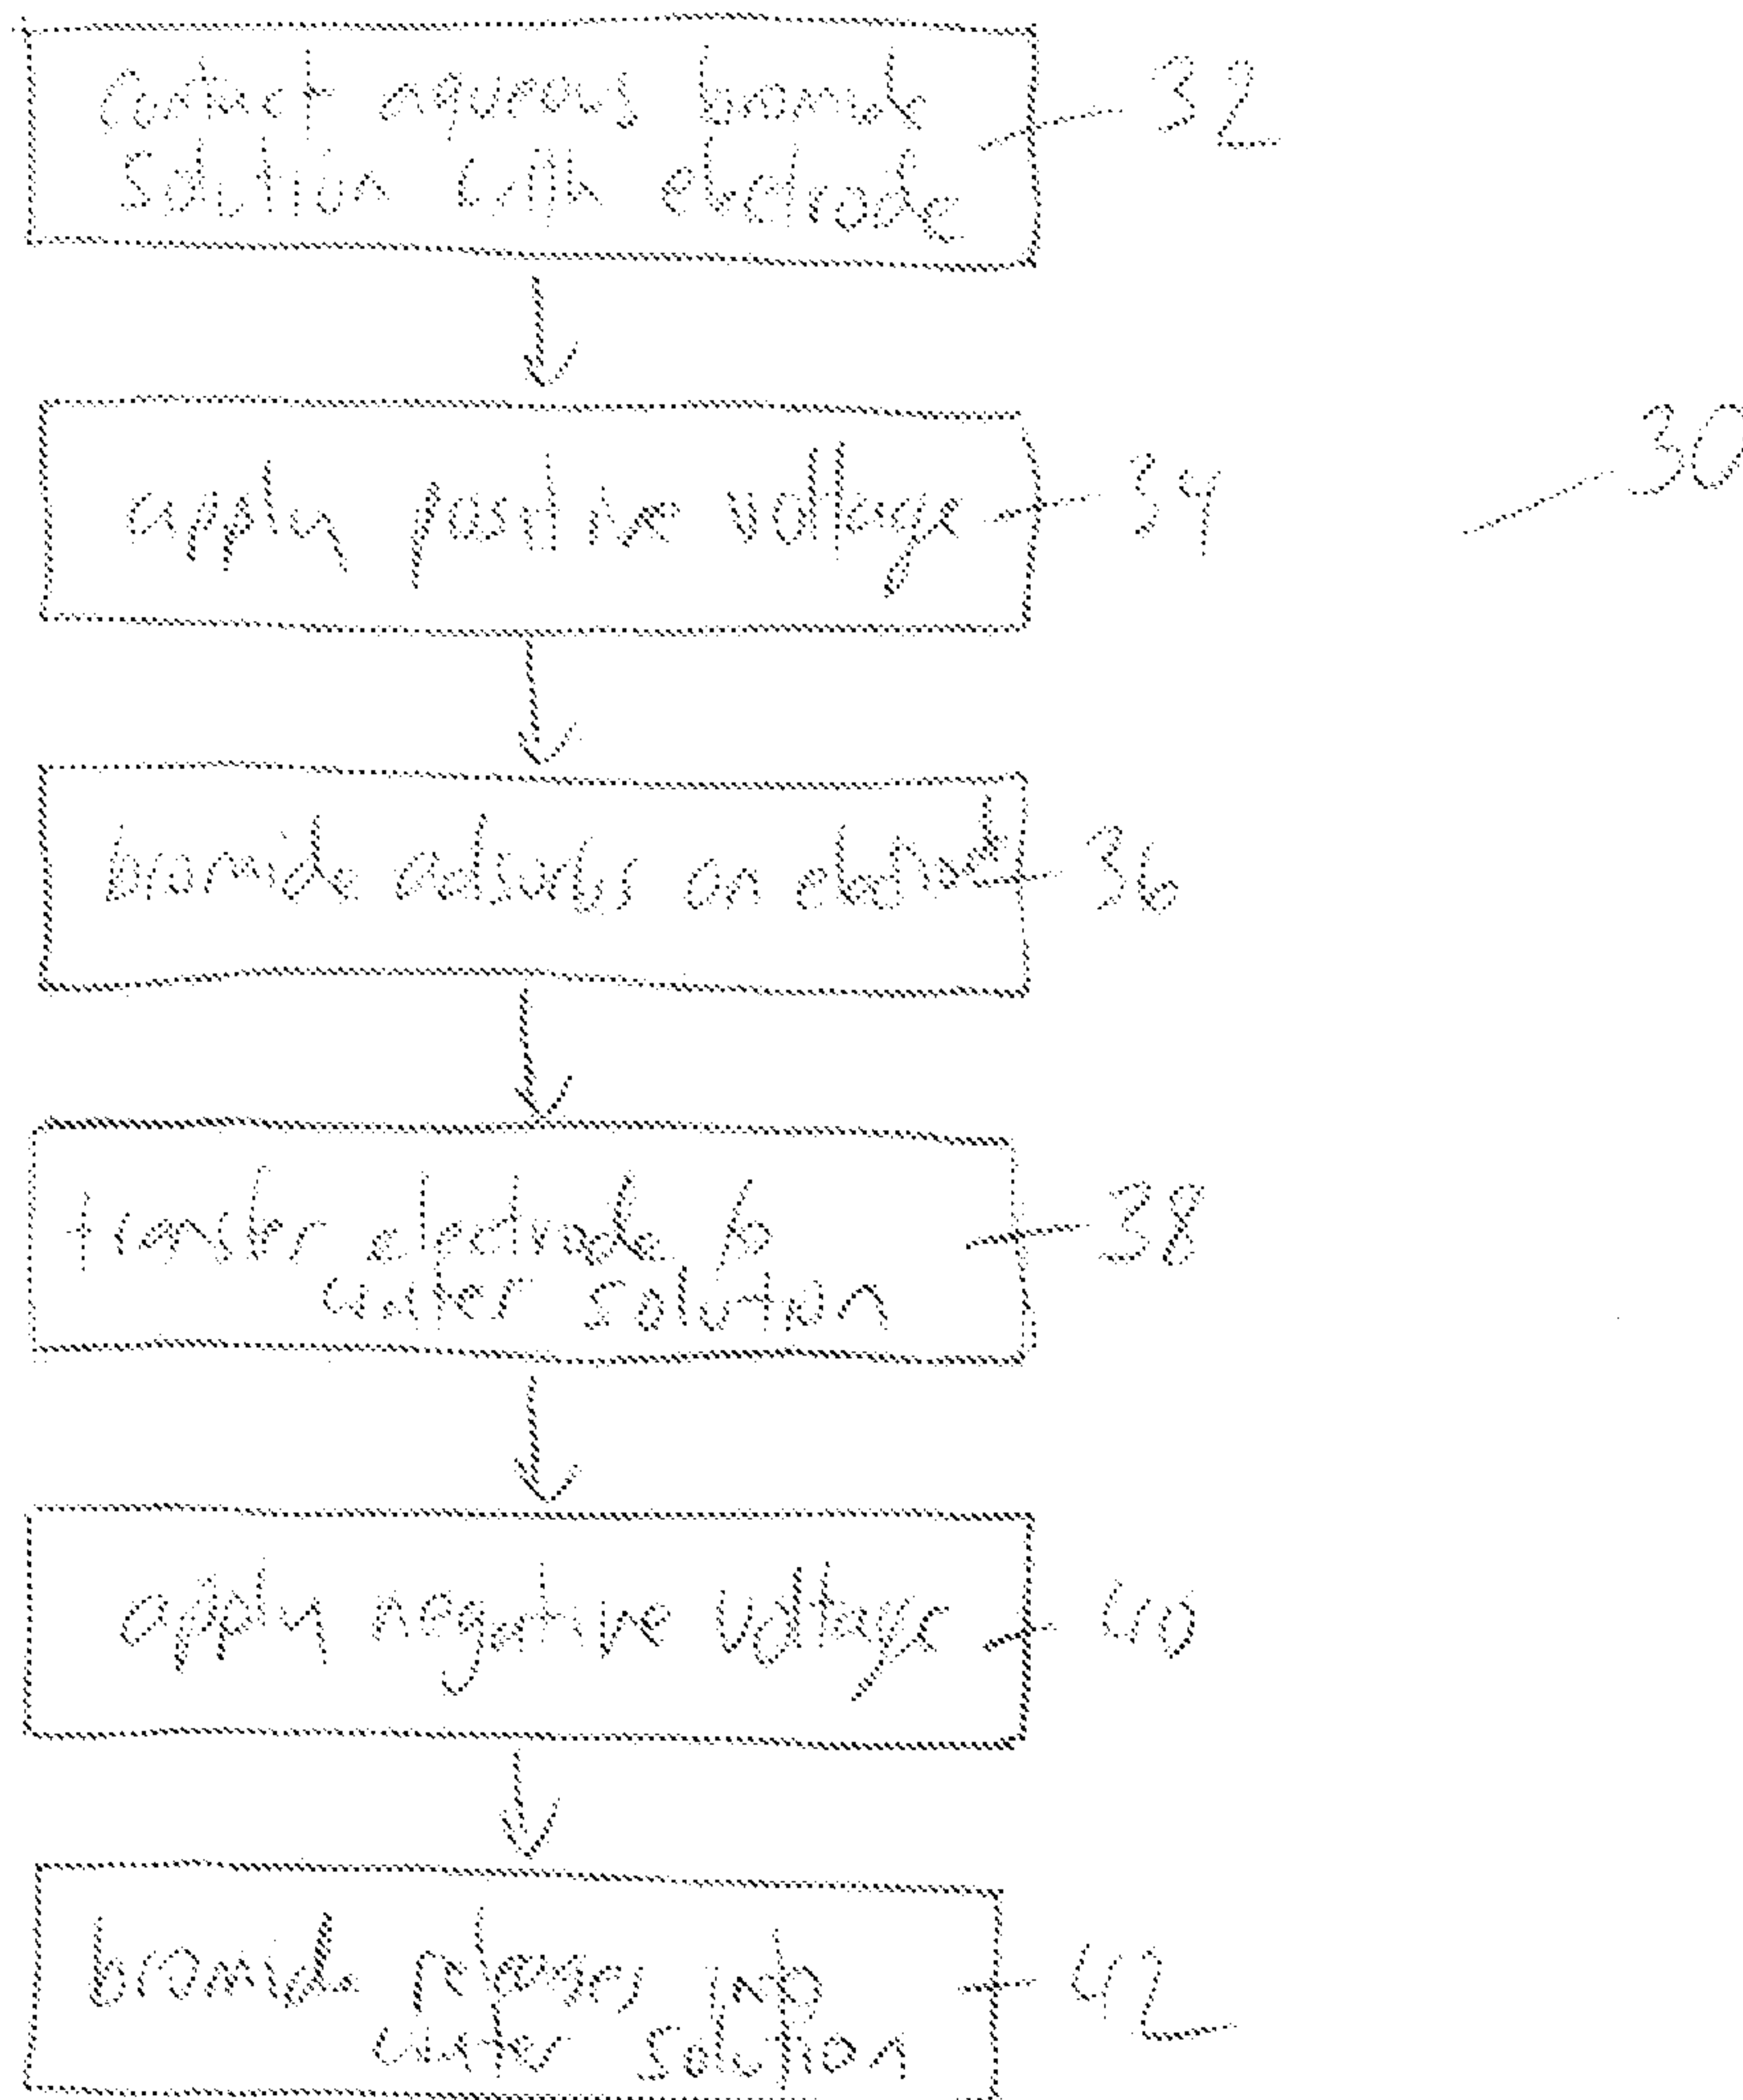 contact aqueous bromide
solution with electrode
32
apply positive voltage
34
30
bromide adsorbs on electrode
36
transfer electrode to
water solution
38
apply negative voltage
40
bromide releases into
water solution
42